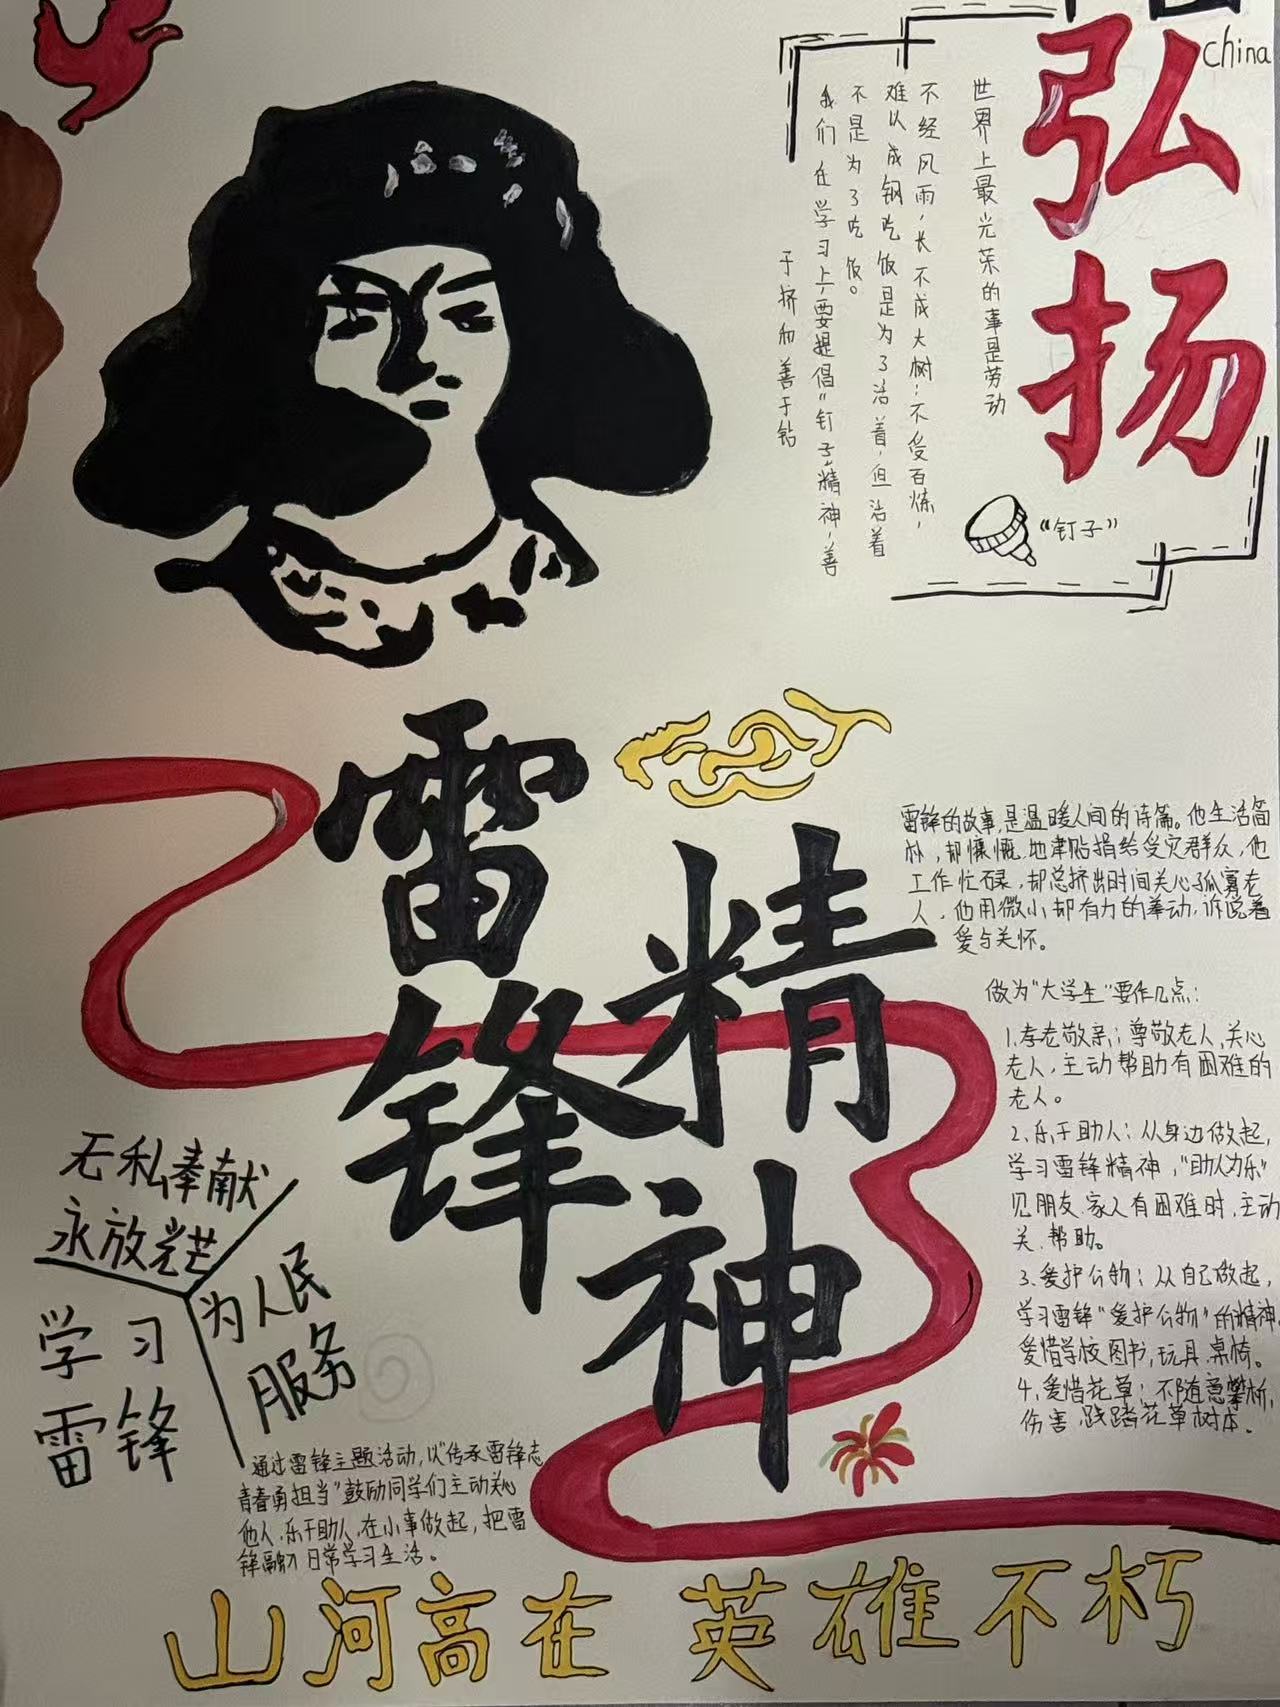 china
弘扬
世界上最光荣的事是劳动
不经风雨,长不成大树;不受百炼,
难以成钢吃饭是为了活着,但活着
不是为了吃饭。
我们在学习上,要提倡“钉子”精神,善
于挤和善于钻
“钉子”
雷锋
精神
雷锋的故事,是温暖人间的诗篇。他生活简
朴,却慷慨地津贴捐给受灾群众,他
工作忙碌,却总挤出时间关心孤寡老
人,他用微小却有力的举动,诉说着
爱与关怀。
做为“大学生”要作几点:
1.孝老敬亲;尊敬老人,关心
老人,主动帮助有困难的
老人。
2.乐于助人;从身边做起,
学习雷锋精神,“助人为乐”
见朋友、家人有困难时,主动
关、帮助。
3.爱护公物;从自己做起,
学习雷锋“爱护公物”的精神。
爱惜学校图书,玩具、桌椅。
4.爱惜花草;不随意攀折,
伤害、践踏花草树木。
无私奉献
永放光芒
为人民
服务
学习
雷锋
通过雷锋主题活动,以“传承雷锋志
青春勇担当”鼓励同学们主动关心
他人、乐于助人,在小事做起,把雷
锋融入日常学习生活。
山河高在 英雄不朽